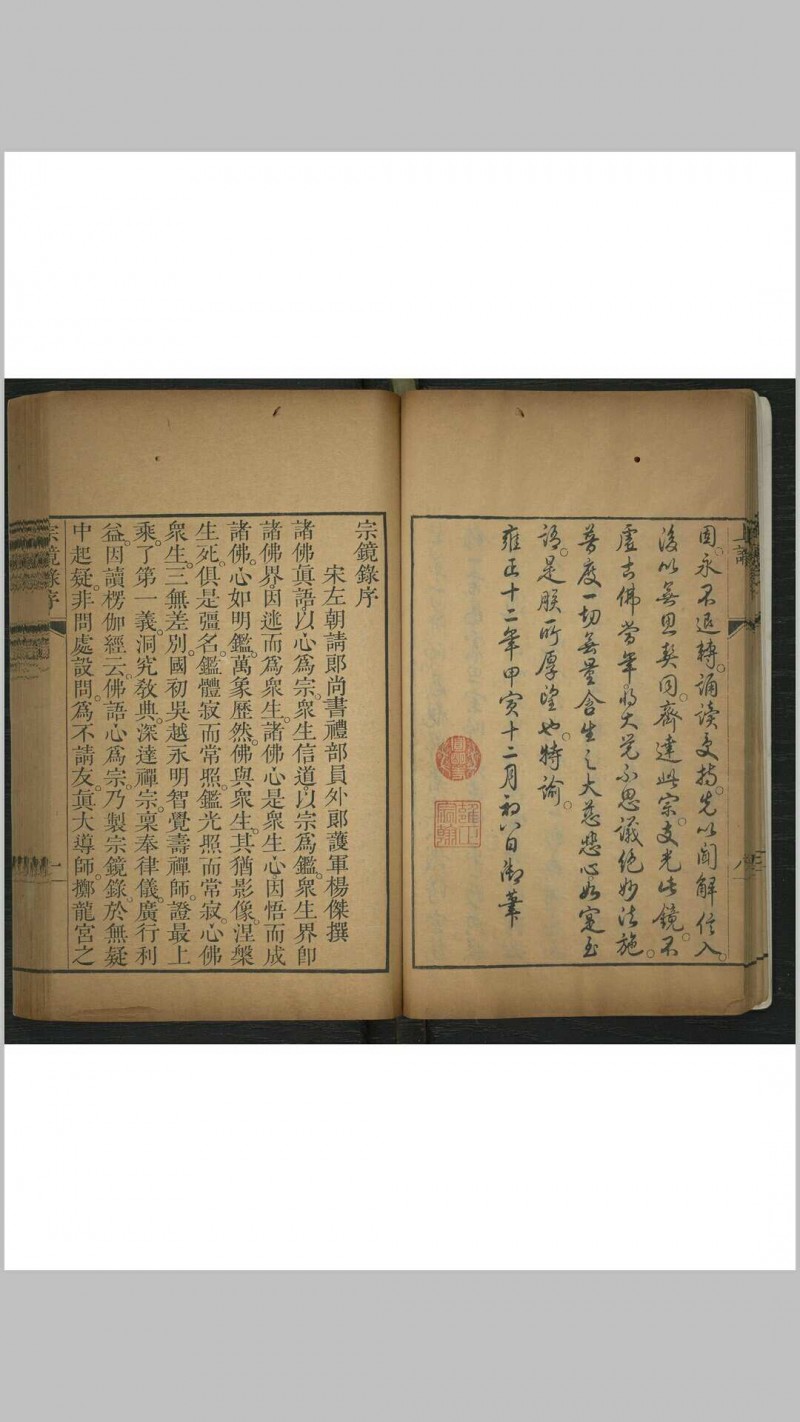 上諭
固。永不退轉。誦讀受持。先以聞解信入。
後以無思契同。齊達此宗。交光此鏡。不
虛古佛當年。將大覺不思議絕妙法施。
普度一切無量含生之大慈悲心如寔至
語。是朕所厚望也。特諭。
雍正十二年甲寅十二月初八日御筆
八
宗鏡錄序
宋左朝請郎尚書禮部員外郎護軍楊傑撰
諸佛眞語。以心爲宗。衆生信道。以宗爲鑑。衆生界卽
諸佛界。因迷而爲衆生。諸佛心是衆生心。因悟而成
諸佛。心如明鑑。萬象歷然。佛與衆生。其猶影像。涅槃
生死。俱是彊名。鑑體寂而常照。鑑光照而常寂。心佛
衆生。三無差別。國初吳越永明智覺壽禪師。證最上
乘。了第一義。洞究敎典。深達禪宗。稟奉律儀。廣行利
益。因讀楞伽經云。佛語心爲宗。乃製宗鏡錄。於無疑
中起疑。非問處設問。爲不請友。眞大導師。擲龍宮之
宗鏡錄序
一